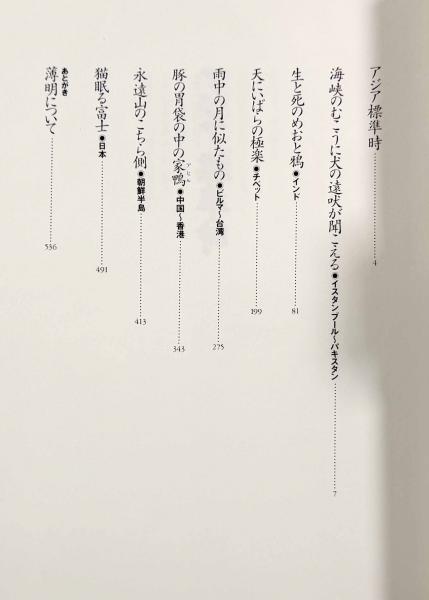 アジア標準時 4
海峡のむこうに犬の遠吠が聞こえる●イスタンブール〜パキスタン 7
生と死のめおと鴉●インド 81
天にいばらの極楽●チベット 199
雨中の月に似たもの●ビルマ〜台湾 275
豚の胃袋の中の家鴨アヒル●中国〜香港 343
永遠山のこちら側●朝鮮半島 413
猫眠る富士●日本 491
あとがき
薄明について 536